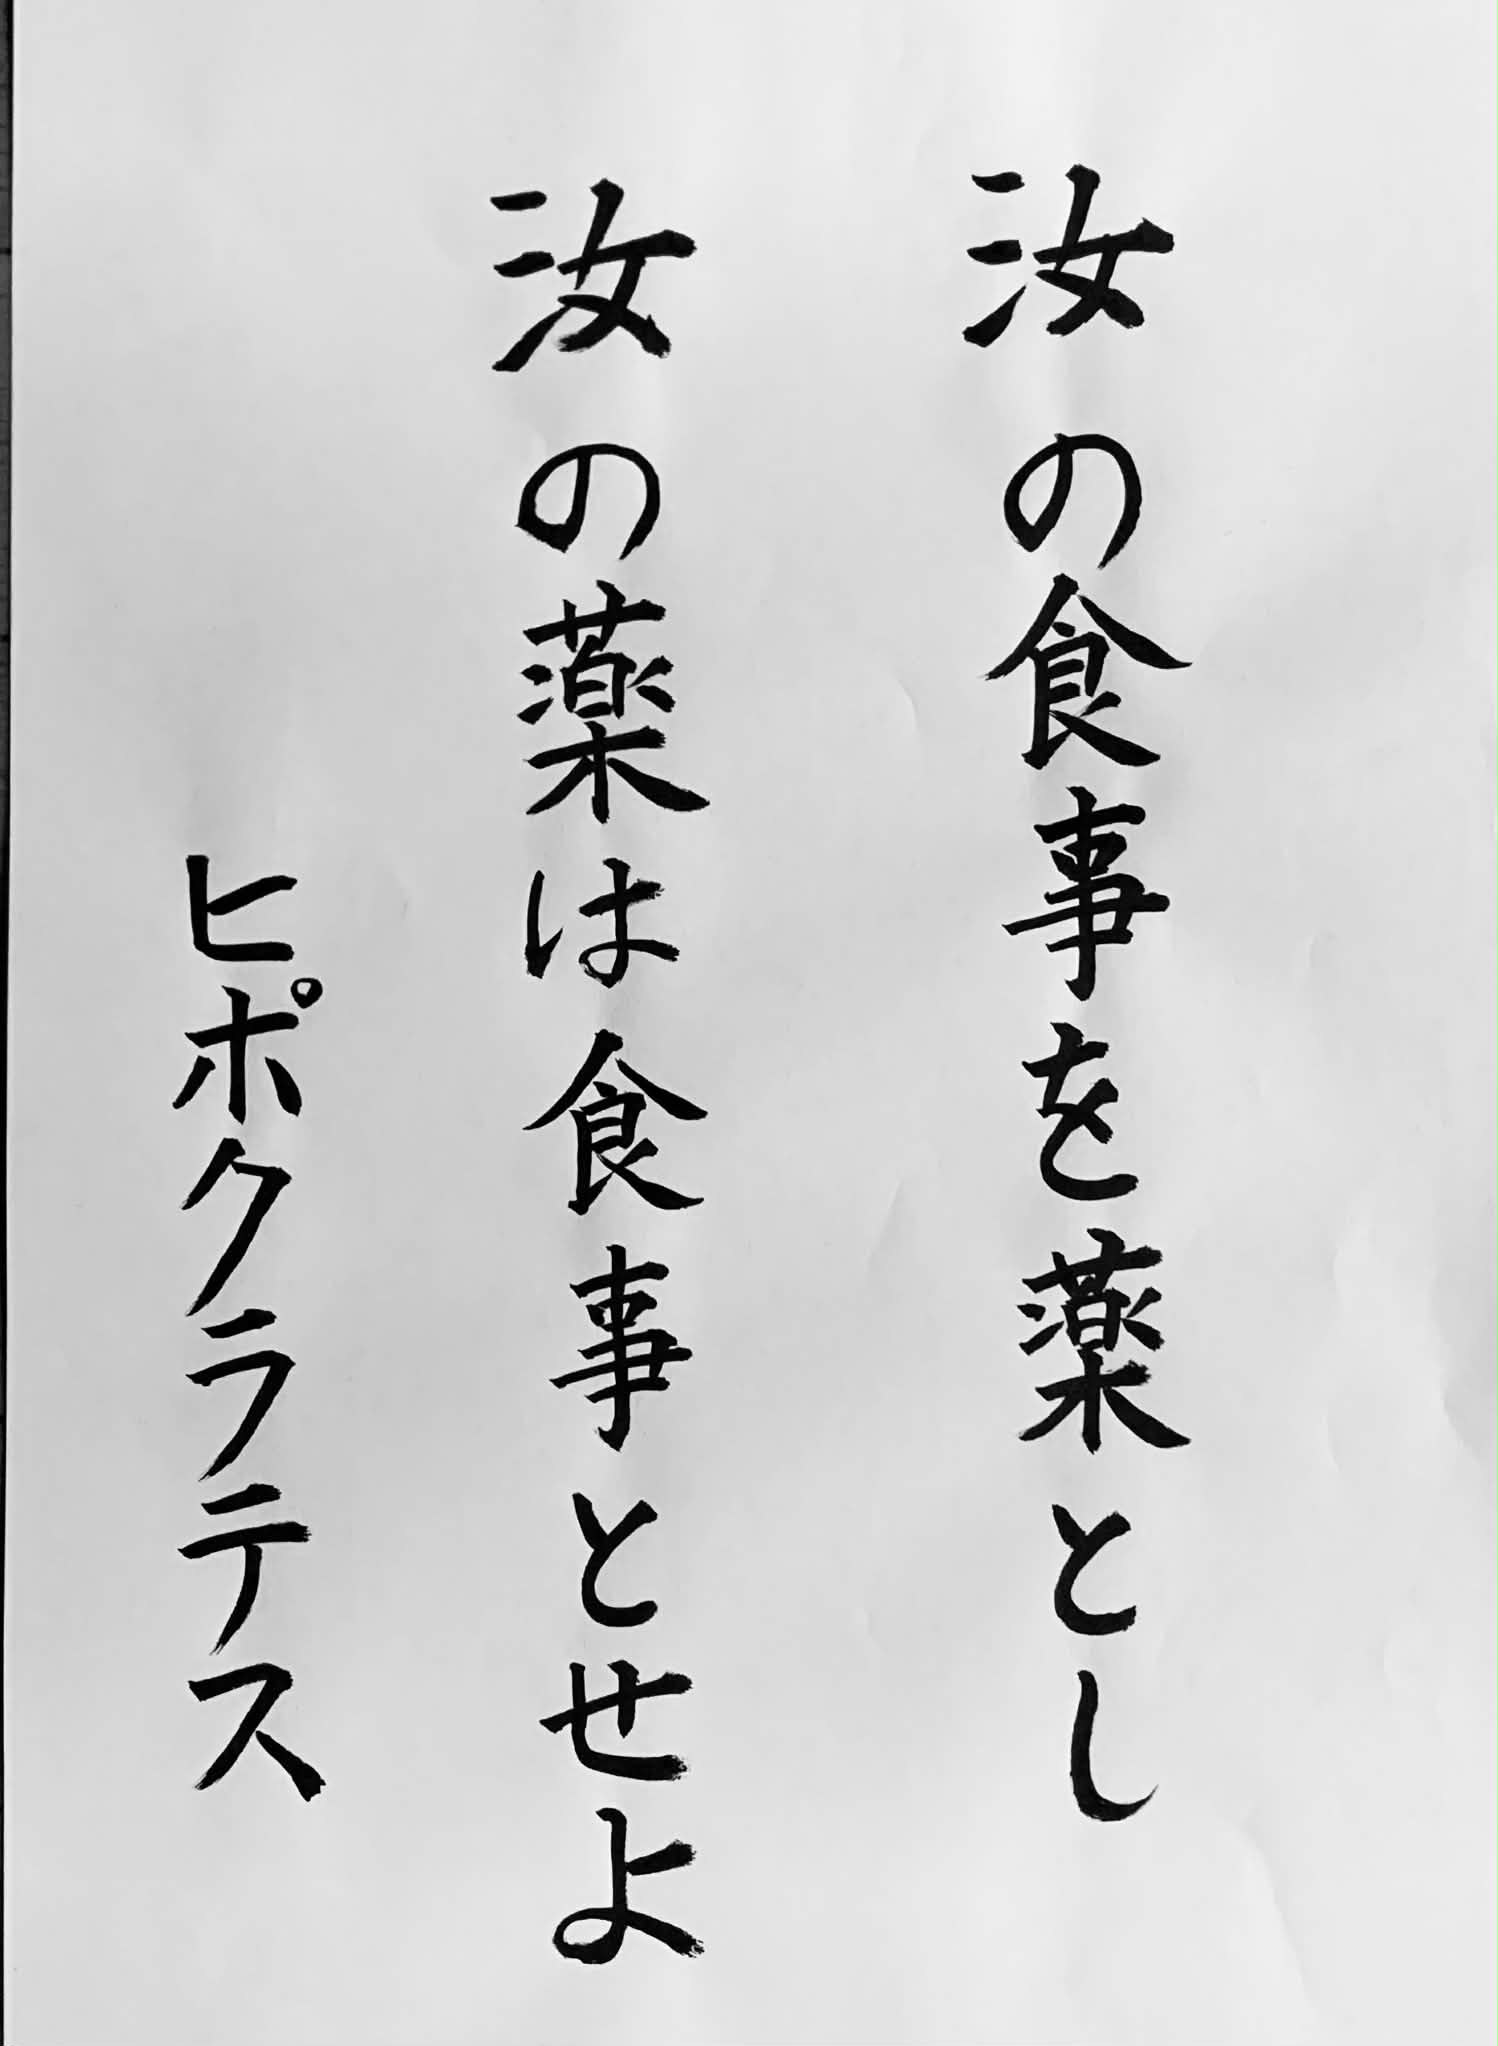 汝の食事を薬とし
汝の薬は食事とせよ
ヒポクラテス